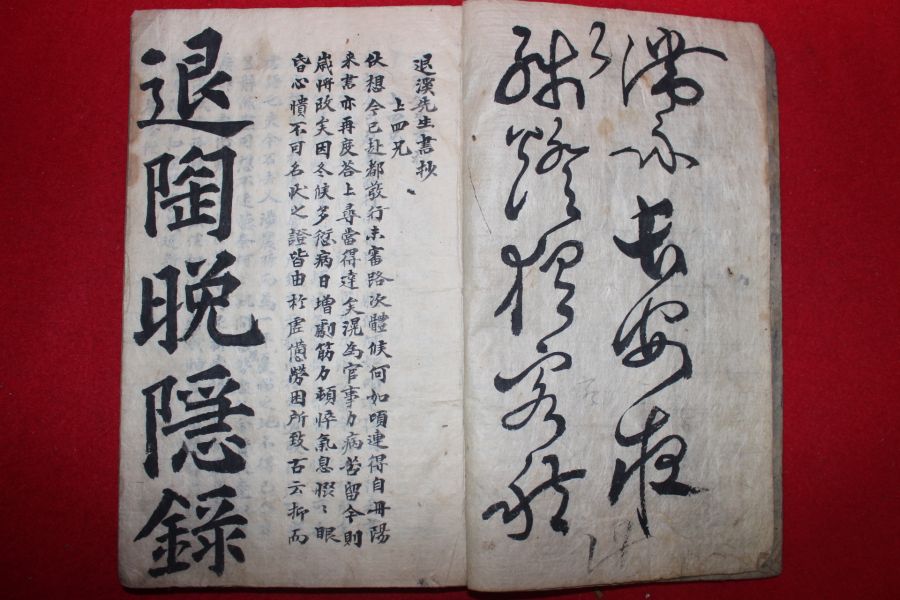 滯雨長安夜
殘燈獨客愁
退溪先生書抄
上四兄
伏想今已赴都行未審路次體候何如頃連得自丹陽
來書亦再度答上尋當得達矣滉為官事力病苦留今則
歲將改矣因冬候多愆病日增劇筋力頓悴氣息惙〻眼
昏心憒不可名狀之證皆由於虛憊勞困所致古云抑而
退陶晩隱錄